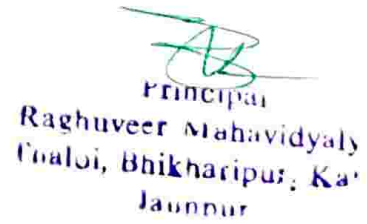 Principal
Raghuveer Mahavidyaly
Bhikharipur, Ka
Jaunpur